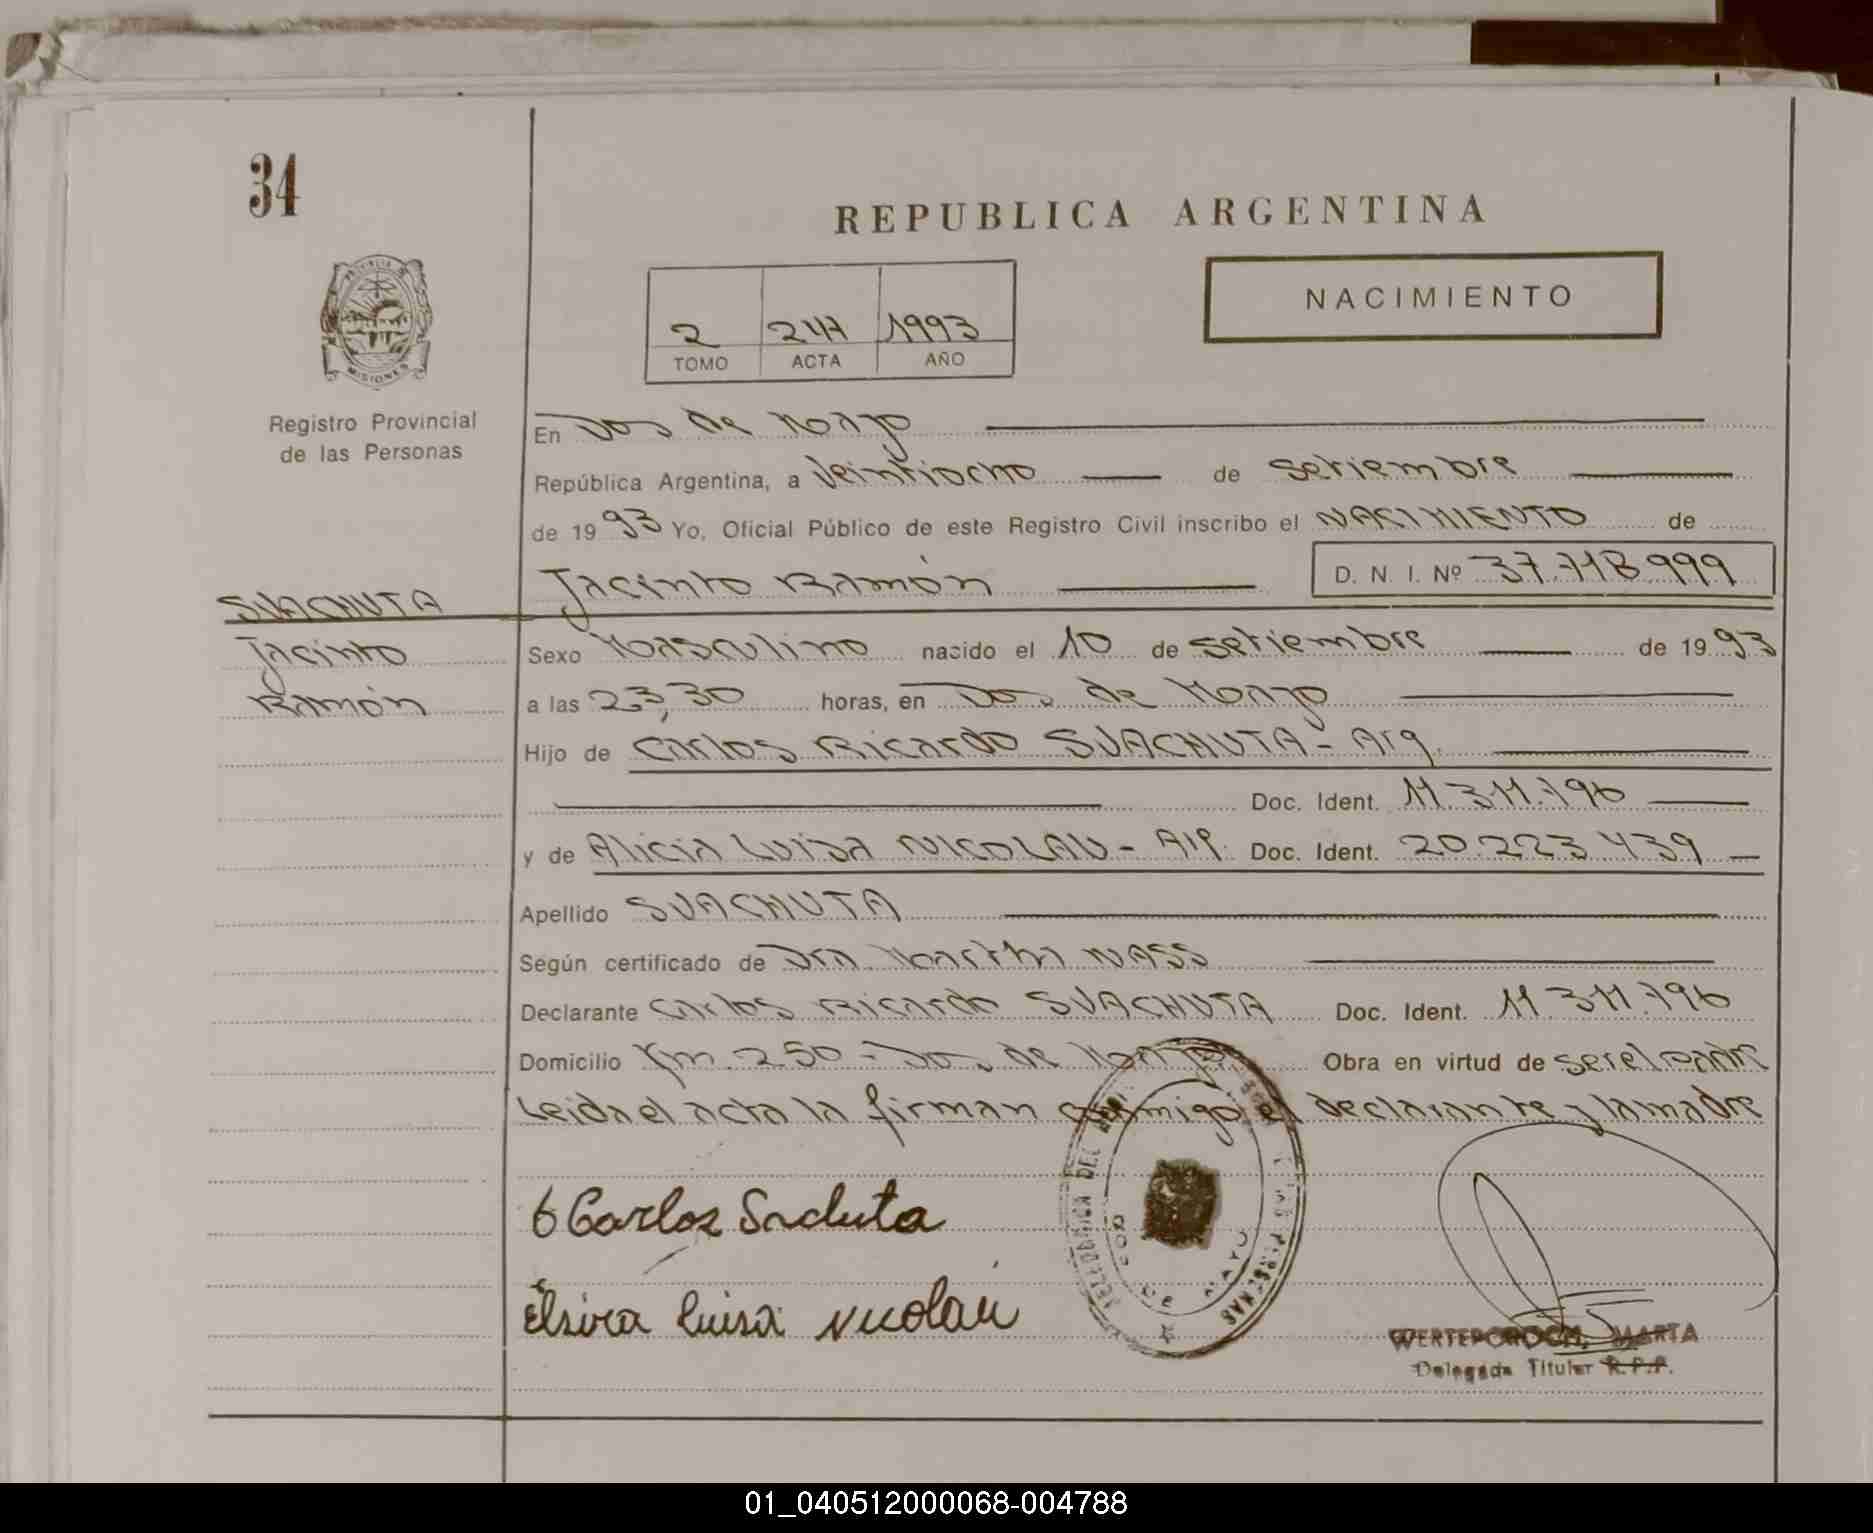 34
REPUBLICA ARGENTINA
PROVINCIA DE
MISIONES
NACIMIENTO
2 241 1993
TOMO ACTA AÑO
Registro Provincial
de las Personas
En Dos de Mayo
República Argentina, a Veintiocho de Setiembre
de 1993 Yo, Oficial Público de este Registro Civil inscribo el NACIMIENTO de
Jacinto Ramón D. N. I. Nº 37.718.999
SUACHUTA
Jacinto
Ramón
Sexo Masculino nacido el 10 de Setiembre de 1993
a las 23,30 horas, en Dos de Mayo
Hijo de Carlos Ricardo SUACHUTA - Arg.
Doc. Ident. 11.311.796
y de Alicia Luisa NICOLAU - Arg. Doc. Ident. 20.223.439
Apellido SUACHUTA
Según certificado de Dra Martha NASS
Declarante Carlos Ricardo SUACHUTA Doc. Ident. 11.311.796
Domicilio Km. 250 - Dos de Mayo Obra en virtud de ser el padre
Leida el acta la firman conmigo el declarante y la madre
Carlos
Luisa Nicolau
DOS DE MAYO
MARTA
Delegada Titular R.P.P.
01_040512000068-004788